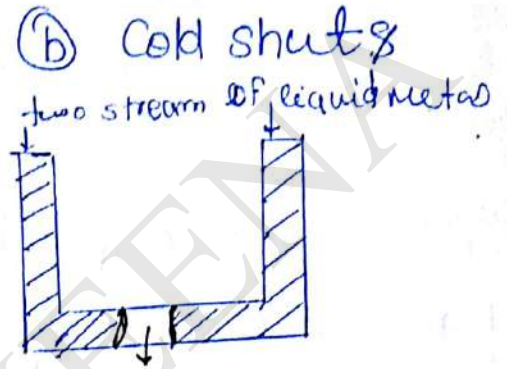 (b) Cold shuts
two stream of liquid metal
MEENA